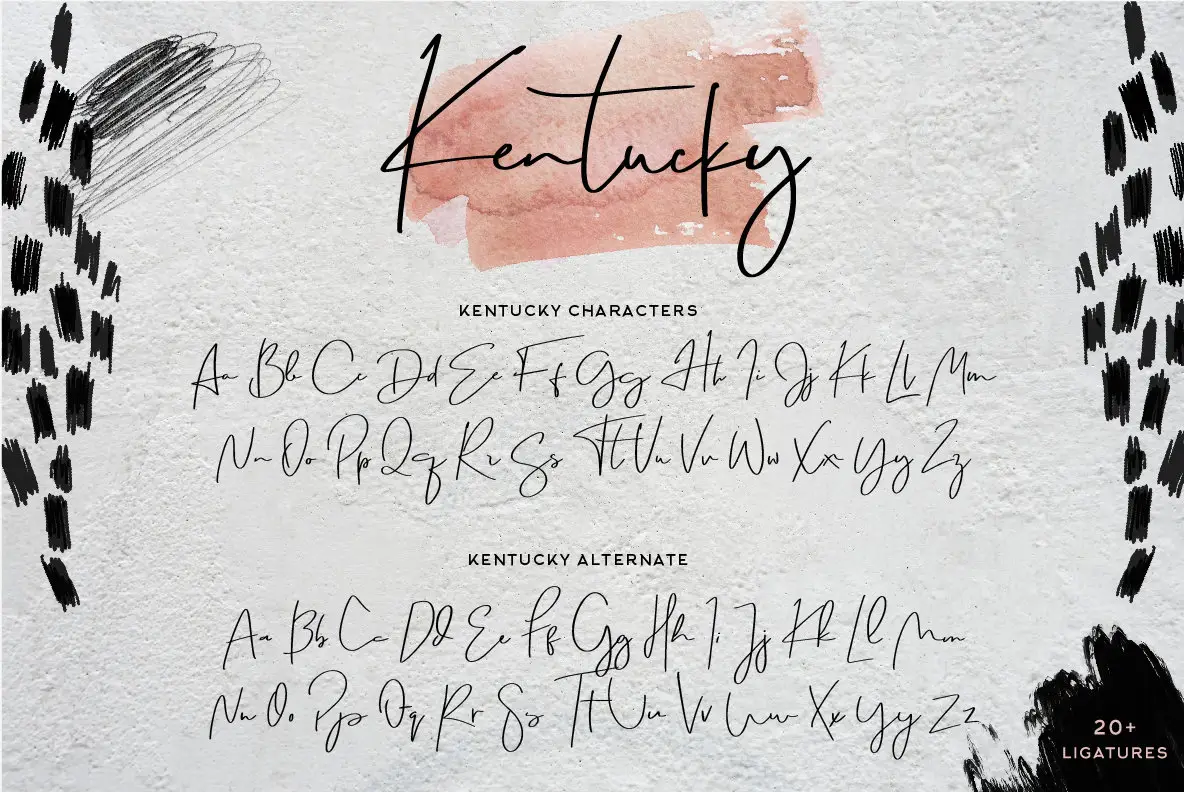 Kentucky
KENTUCKY CHARACTERS
Aa Bb Cc Dd Ee Ff Gg Hh Ii Jj Kk Ll Mm
Nn Oo Pp Qq Rr Ss Tt Uu Vv Ww Xx Yy Zz
KENTUCKY ALTERNATE
Aa Bb Cc Dd Ee Ff Gg Hh Ii Jj Kk Ll Mm
Nn Oo Pp Qq Rr Ss Tt Uu Vv Ww Xx Yy Zz
20+
LIGATURES